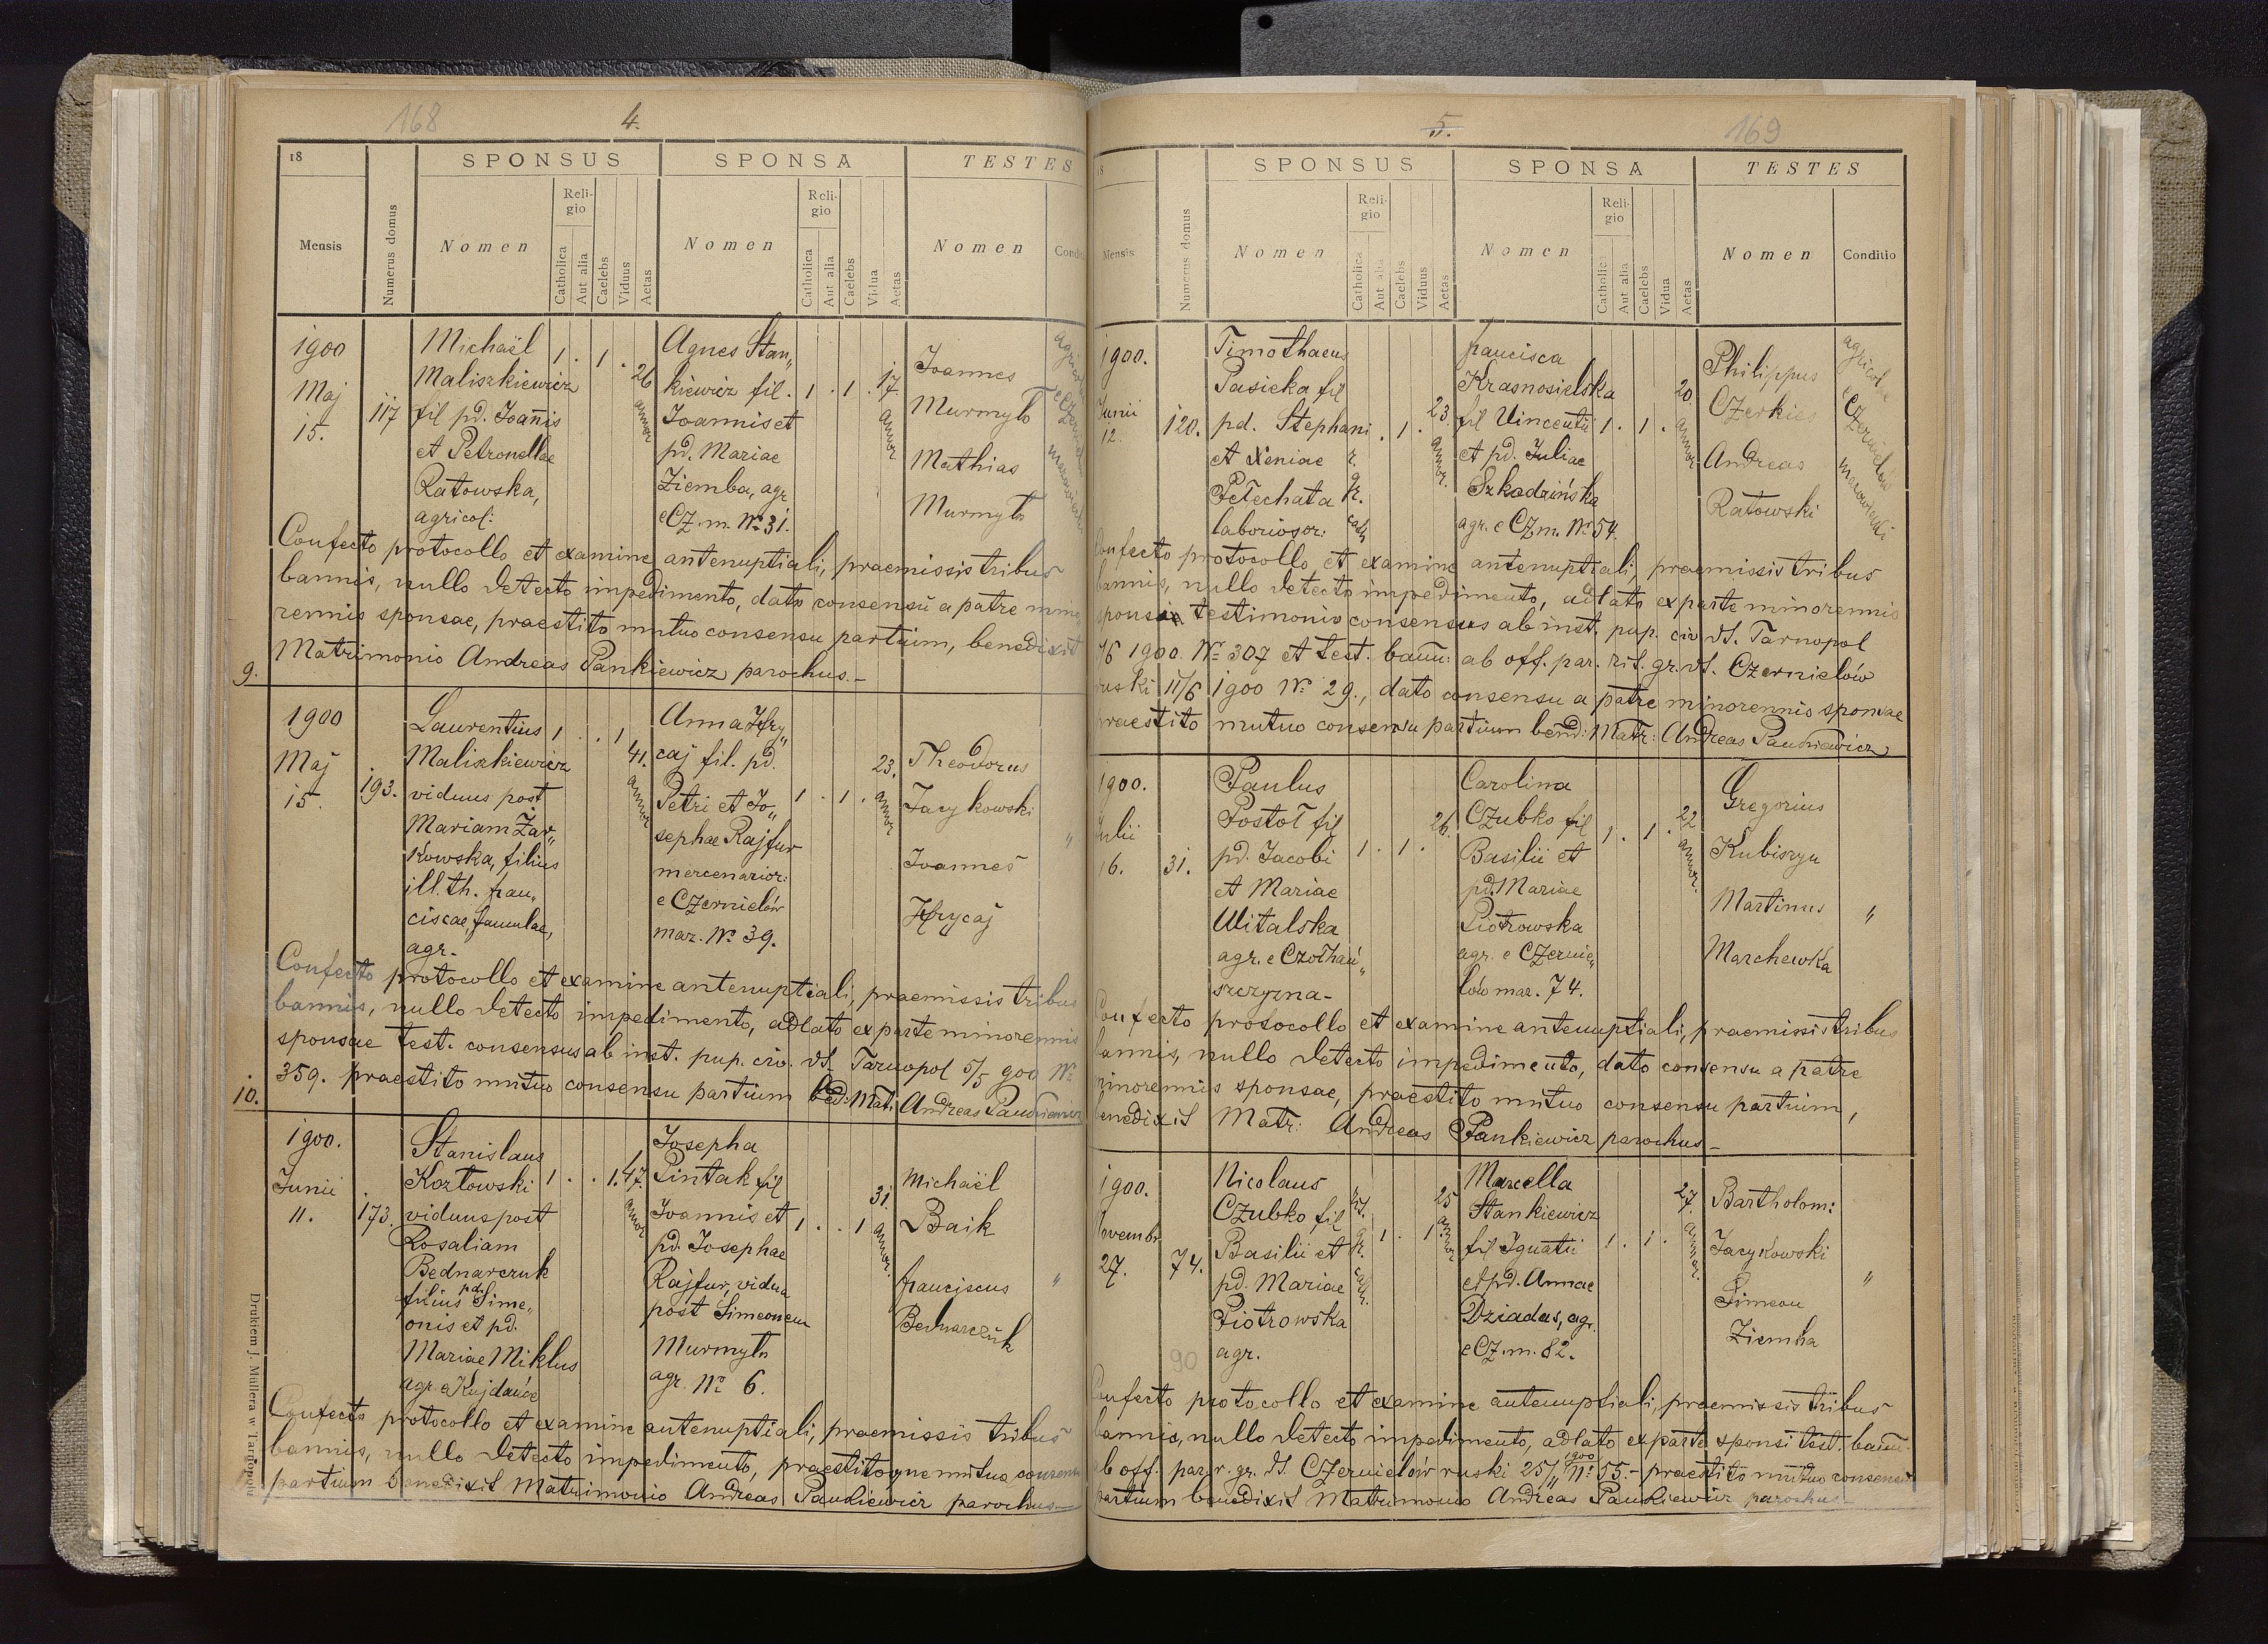 168
4.
18
SPONSUS
SPONSA
TESTES
Mensis
Numerus domus
Nomen
Religio
Catholica
Aut alia
Caelebs
Viduus
Aetas
Nomen
Religio
Catholica
Aut alia
Caelebs
Vidua
Aetas
Nomen
1900
Maj
15.
117
Michaël
Maliszkiewicz
fil pd. Joannis
et Petronellae
Ratowska,
agricol:
1 . 1 .
26
annor
Agnes Stan„
kiewicz fil.
Joannis et
pd. Mariae
Ziemba, agr
e Cz. m. No 31.
1 . 1 .
17.
annor
Joannes
Murmyło
Mathias
Murmyło
Confecto protocollo et examine antenuptiali, praemissis tribus
bannis, nullo detecto impedimento, dato consensu a patre mino
rennis sponsae, praestito mutuo consensu partium, benedixit
Matrimonio Andreas Pankiewicz parochus.-
9.
1900
Maj
15.
193.
Laurentius
Maliszkiewicz
viduus post
Mariam Żar„
kowska, filius
ill. th. fran„
ciscae, famulae,
agr.
1 . . 1
41.
annor
Anna Hry„
caj fil. pd.
Petri et Jo„
sephae Rajfur
mercenarior:
e Czernielów
maz. No 39.
1 . 1 .
23.
annor
Theodorus
Jacykowski
Joannes
Hrycaj
„
Confecto protocollo et examine antenuptiali, praemissis tribus
bannis, nullo detecto impedimento, adlato ex parte minorennis
sponsae test. consensus ab inst. pup. civ. dt. Tarnopol 5/5 900 No
359. praestito mutuo consensu partium bed: Mat: Andreas Pankiewicz
10.
1900.
Junii
11.
173.
Stanislaus
Kozłowski
viduus post
Rosaliam
Bednarczuk
filius pd. Sime„
onis et pd.
Mariae Miklus
agr. e Kujdańce
1 . . 1.
47.
annor
Josepha
Pintak fil
Joannis et
pd. Josephae
Rajfur, vidua
post Simeonem
Murmyło
agr. No 6.
1 . . 1
31.
annor.
Michaël
Baik
franciscus
Bednarczuk
„
Confecto protocollo et examine antenuptiali, praemissis tribus
bannis, nullo detecto impedimento, praestitoque mutuo consensu
partium benedixit Matrimonio Andreas Pankiewicz parochus-
Drukiem J. Müllera w Tarnopolu
5.
169
SPONSUS
SPONSA
TESTES
Mensis
Numerus domus
Nomen
Religio
Catholica
Aut alia
Caelebs
Viduus
Aetas
Nomen
Religio
Catholica
Aut alia
Caelebs
Vidua
Aetas
Nomen
Conditio
1900.
Junii
12.
120.
Timothaeus
Pasieka fil
pd. Stephani
et Xeniae
Pełechata
laboriosor:
r.
gr.
cath
. 1 .
23.
annor.
francisca
Krasnosielska
fil Vincentii
et pd. Juliae
Szkodzińska
agr. e Cz m. No 54.
1 . 1 .
20.
annor
Philippus
Czerkies
Andreas
Ratowski
agricol
e Czernielów
mazowiecki
Confecto protocollo et examine antenuptiali, praemissis tribus
bannis, nullo detecto impedimento, adlato ex parte minorennis
sponsi testimonio consensus ab inst. pup. civ dt. Tarnopol
1900. No 307 et test. bann: ab off. par. rit. gr. dt. Czernielów
ruski 11/6 1900 No 29., dato consensu a patre minorennis sponsae
praestito mutuo consensu partium bend: Matr: Andreas Pankiewicz
1900.
Julii
16.
31.
Paulus
Postoł fil
pd. Jacobi
et Mariae
Witalska
agr. e Czołhań„
szczyzna-
1 . 1 .
26.
Carolina
Czubko fil
Basilii et
pd. Mariae
Piotrowska
agr. e Czernie„
lów maz. 74.
1 . 1 .
22
annor.
Gregorius
Kubiszyn
Martinus
Marchewka
„
Confecto protocollo et examine antenuptiali, praemissis tribus
bannis, nullo detecto impedimento, dato consensu a patre
minorennis sponsae, praestito mutuo consensu partium,
benedixit Matr: Andreas Pankiewicz parochus-
1900.
27.
74.
90
Nicolaus
Czubko fil
Basilii et
pd. Mariae
Piotrowska
agr.
rt.
gr.
cath.
1 . 1.
25
annor
Marcella
Stankiewicz
fil Ignatii
et pd. Annae
Dziadas, agr.
e Cz. m. 82.
1 . 1 .
27.
annor.
Bartholom:
Jacykowski
Simeon
Ziemba
„
Confecto protocollo et examine antenuptiali, praemissis tribus
bannis, nullo detecto impedimento, adlato ex parte sponsi test. bann.
ab off. par. r. gr. dt. Czernielów ruski 25/11 900 No 55.- praestito mutuo consensu
partium benedixit Matrimonio Andreas Pankiewicz parochus-